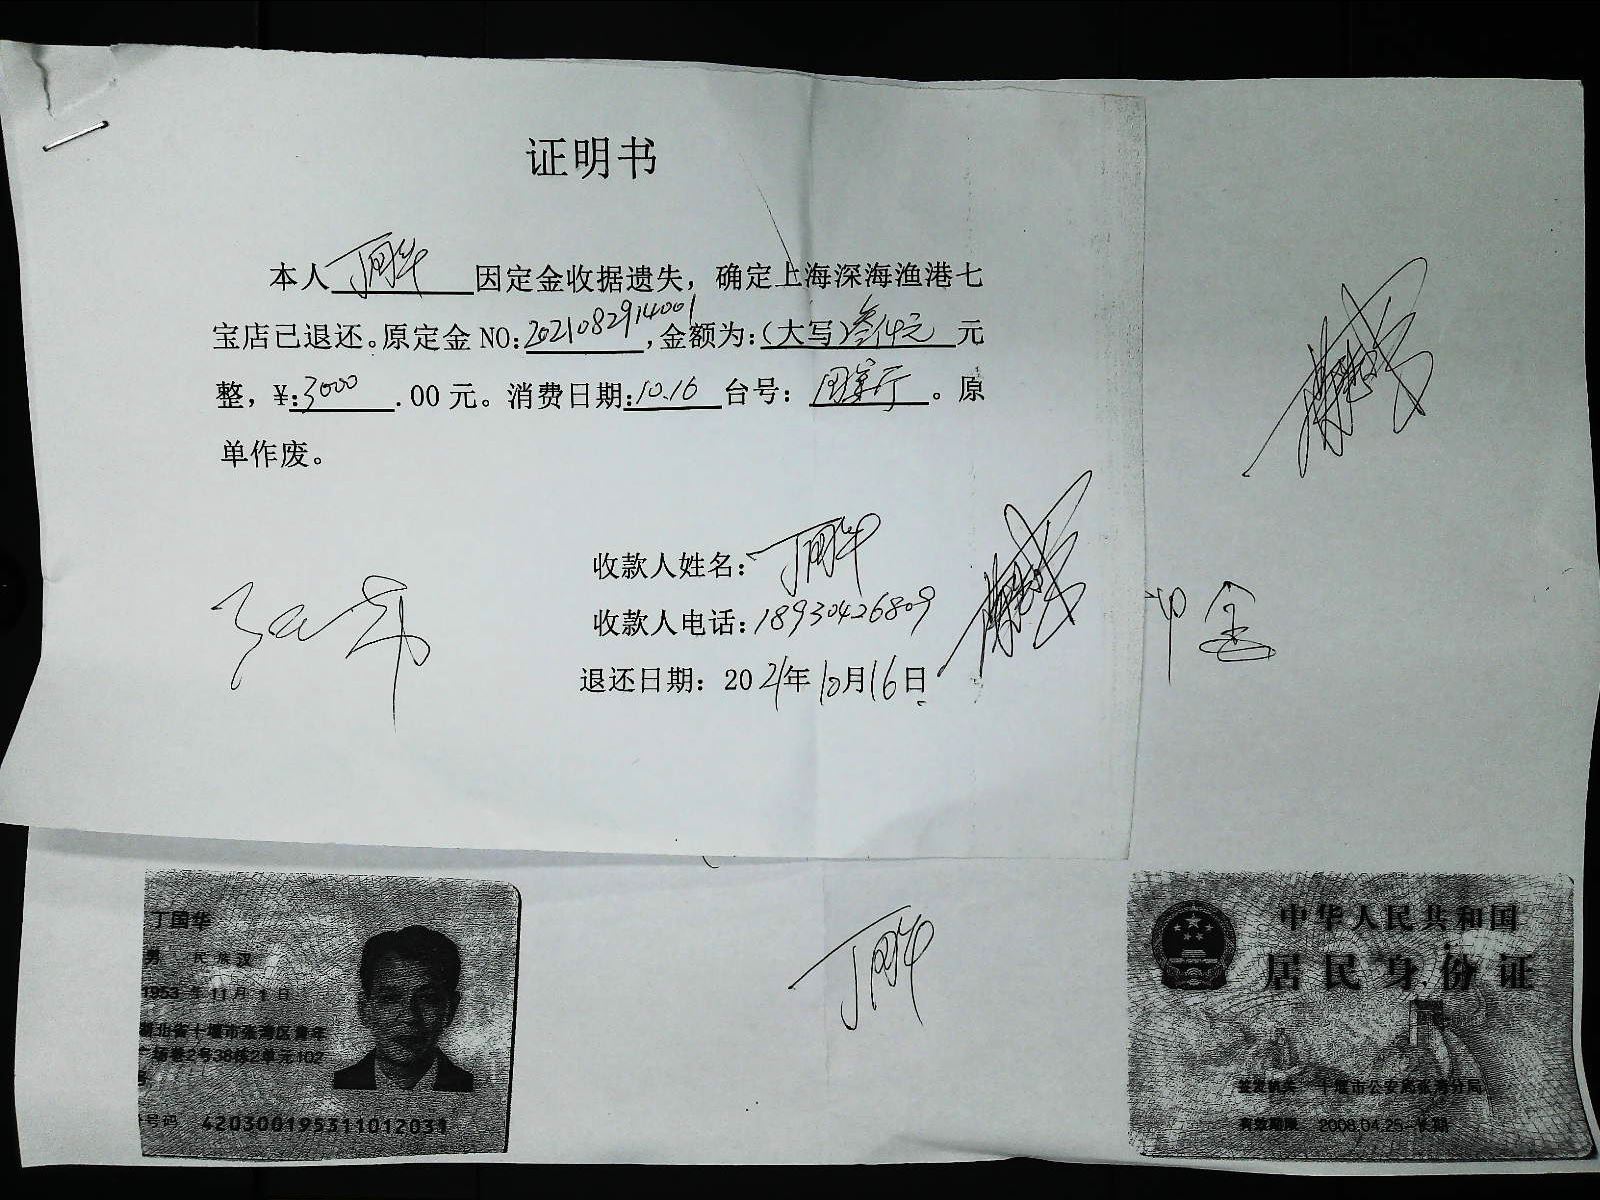 证明书
本人丁国华因定金收据遗失，确定上海深海渔港七
宝店已退还。原定金NO:2021082914001,金额为:(大写)叁仟元元
整，¥:3000.00元。消费日期:10.16台号：国宴厅。原
单作废。
收款人姓名:丁国华
收款人电话:18930426809
退还日期：2021年10月16日
丁国华
丁国华
男 民族汉
1953年11月1日
湖北省十堰市张湾区青年
广场巷2号38栋2单元102
号
号码 420300195311012031
中华人民共和国
居民身份证
签发机关 十堰市公安局张湾分局
有效期限 2008.04.25-长期